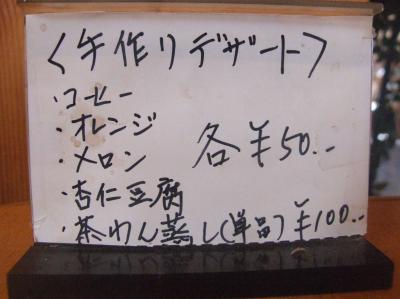 〈手作りデザート〉
・コーヒー
・オレンジ
・メロン 各¥50.-
・杏仁豆腐
・茶わん蒸し(単品)¥100.-